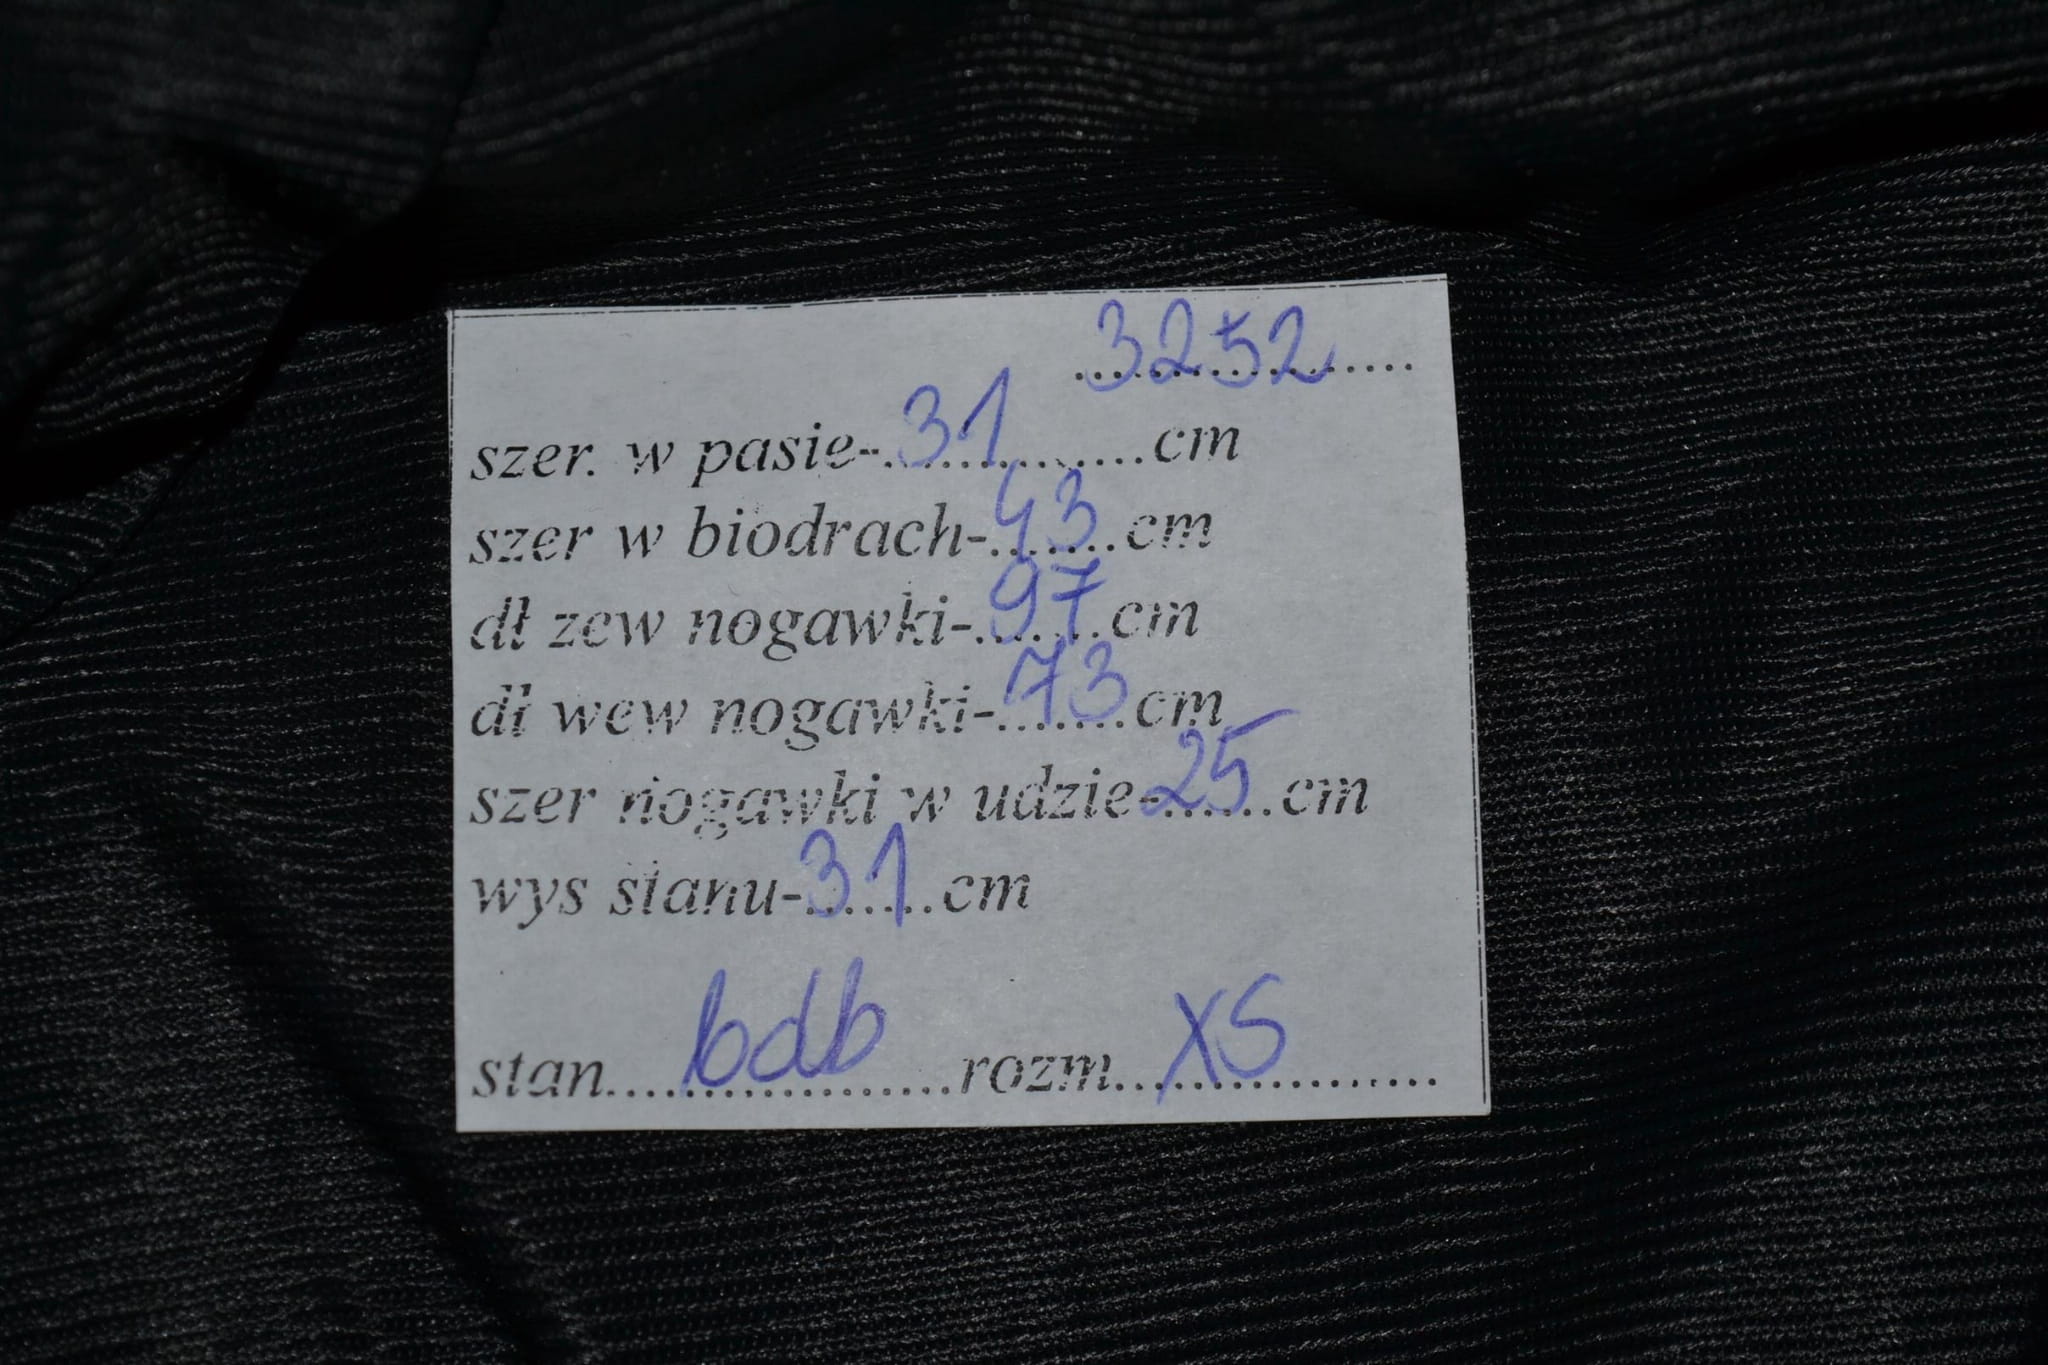 3252
szer. w pasie-31 cm
szer w biodrach-43 cm
dł zew nogawki-97 cm
dł wew nogawki-73 cm
szer nogawki w udzie-25 cm
wys stanu-31 cm
stan bdb rozm XS